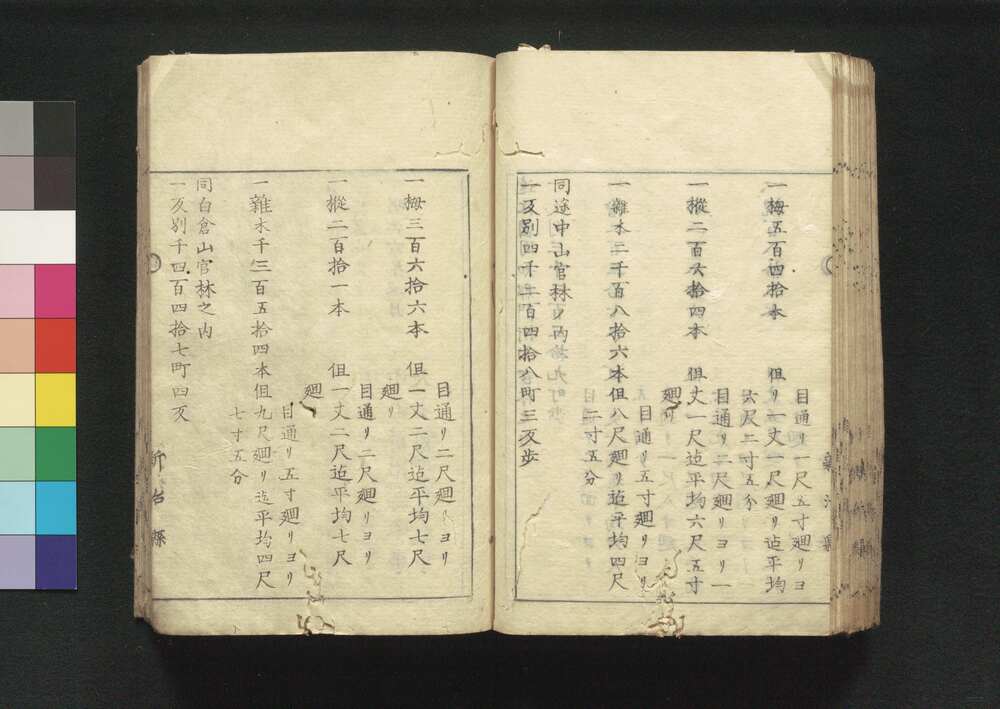 一栂五百四拾本
目通リ一尺五寸廻リヨ
但リ一丈一尺廻リ迠平均
六尺二寸五分
一樅二百六拾四本
目通リ二尺廻リヨリ一
但丈一尺迠平均六尺五寸
廻リ
一雜木二千百八拾六本
目通リ五寸廻リヨリ
但八尺廻リ迠平均四尺
二寸五分
同途中山官林ノ内
一反別四千二百四拾八町三反歩
一栂三百六拾六本
目通リ二尺廻リヨリ
但一丈二尺迠平均七尺
廻リ
一樅二百拾一本
目通リ二尺廻ヨリ
但一丈二尺迠平均七尺
廻
一雜木千三百五拾四本
目通リ五寸廻リヨリ
但九尺廻リ迠平均四尺
七寸五分
同白倉山官林之内
一反別千四百四拾七町四反